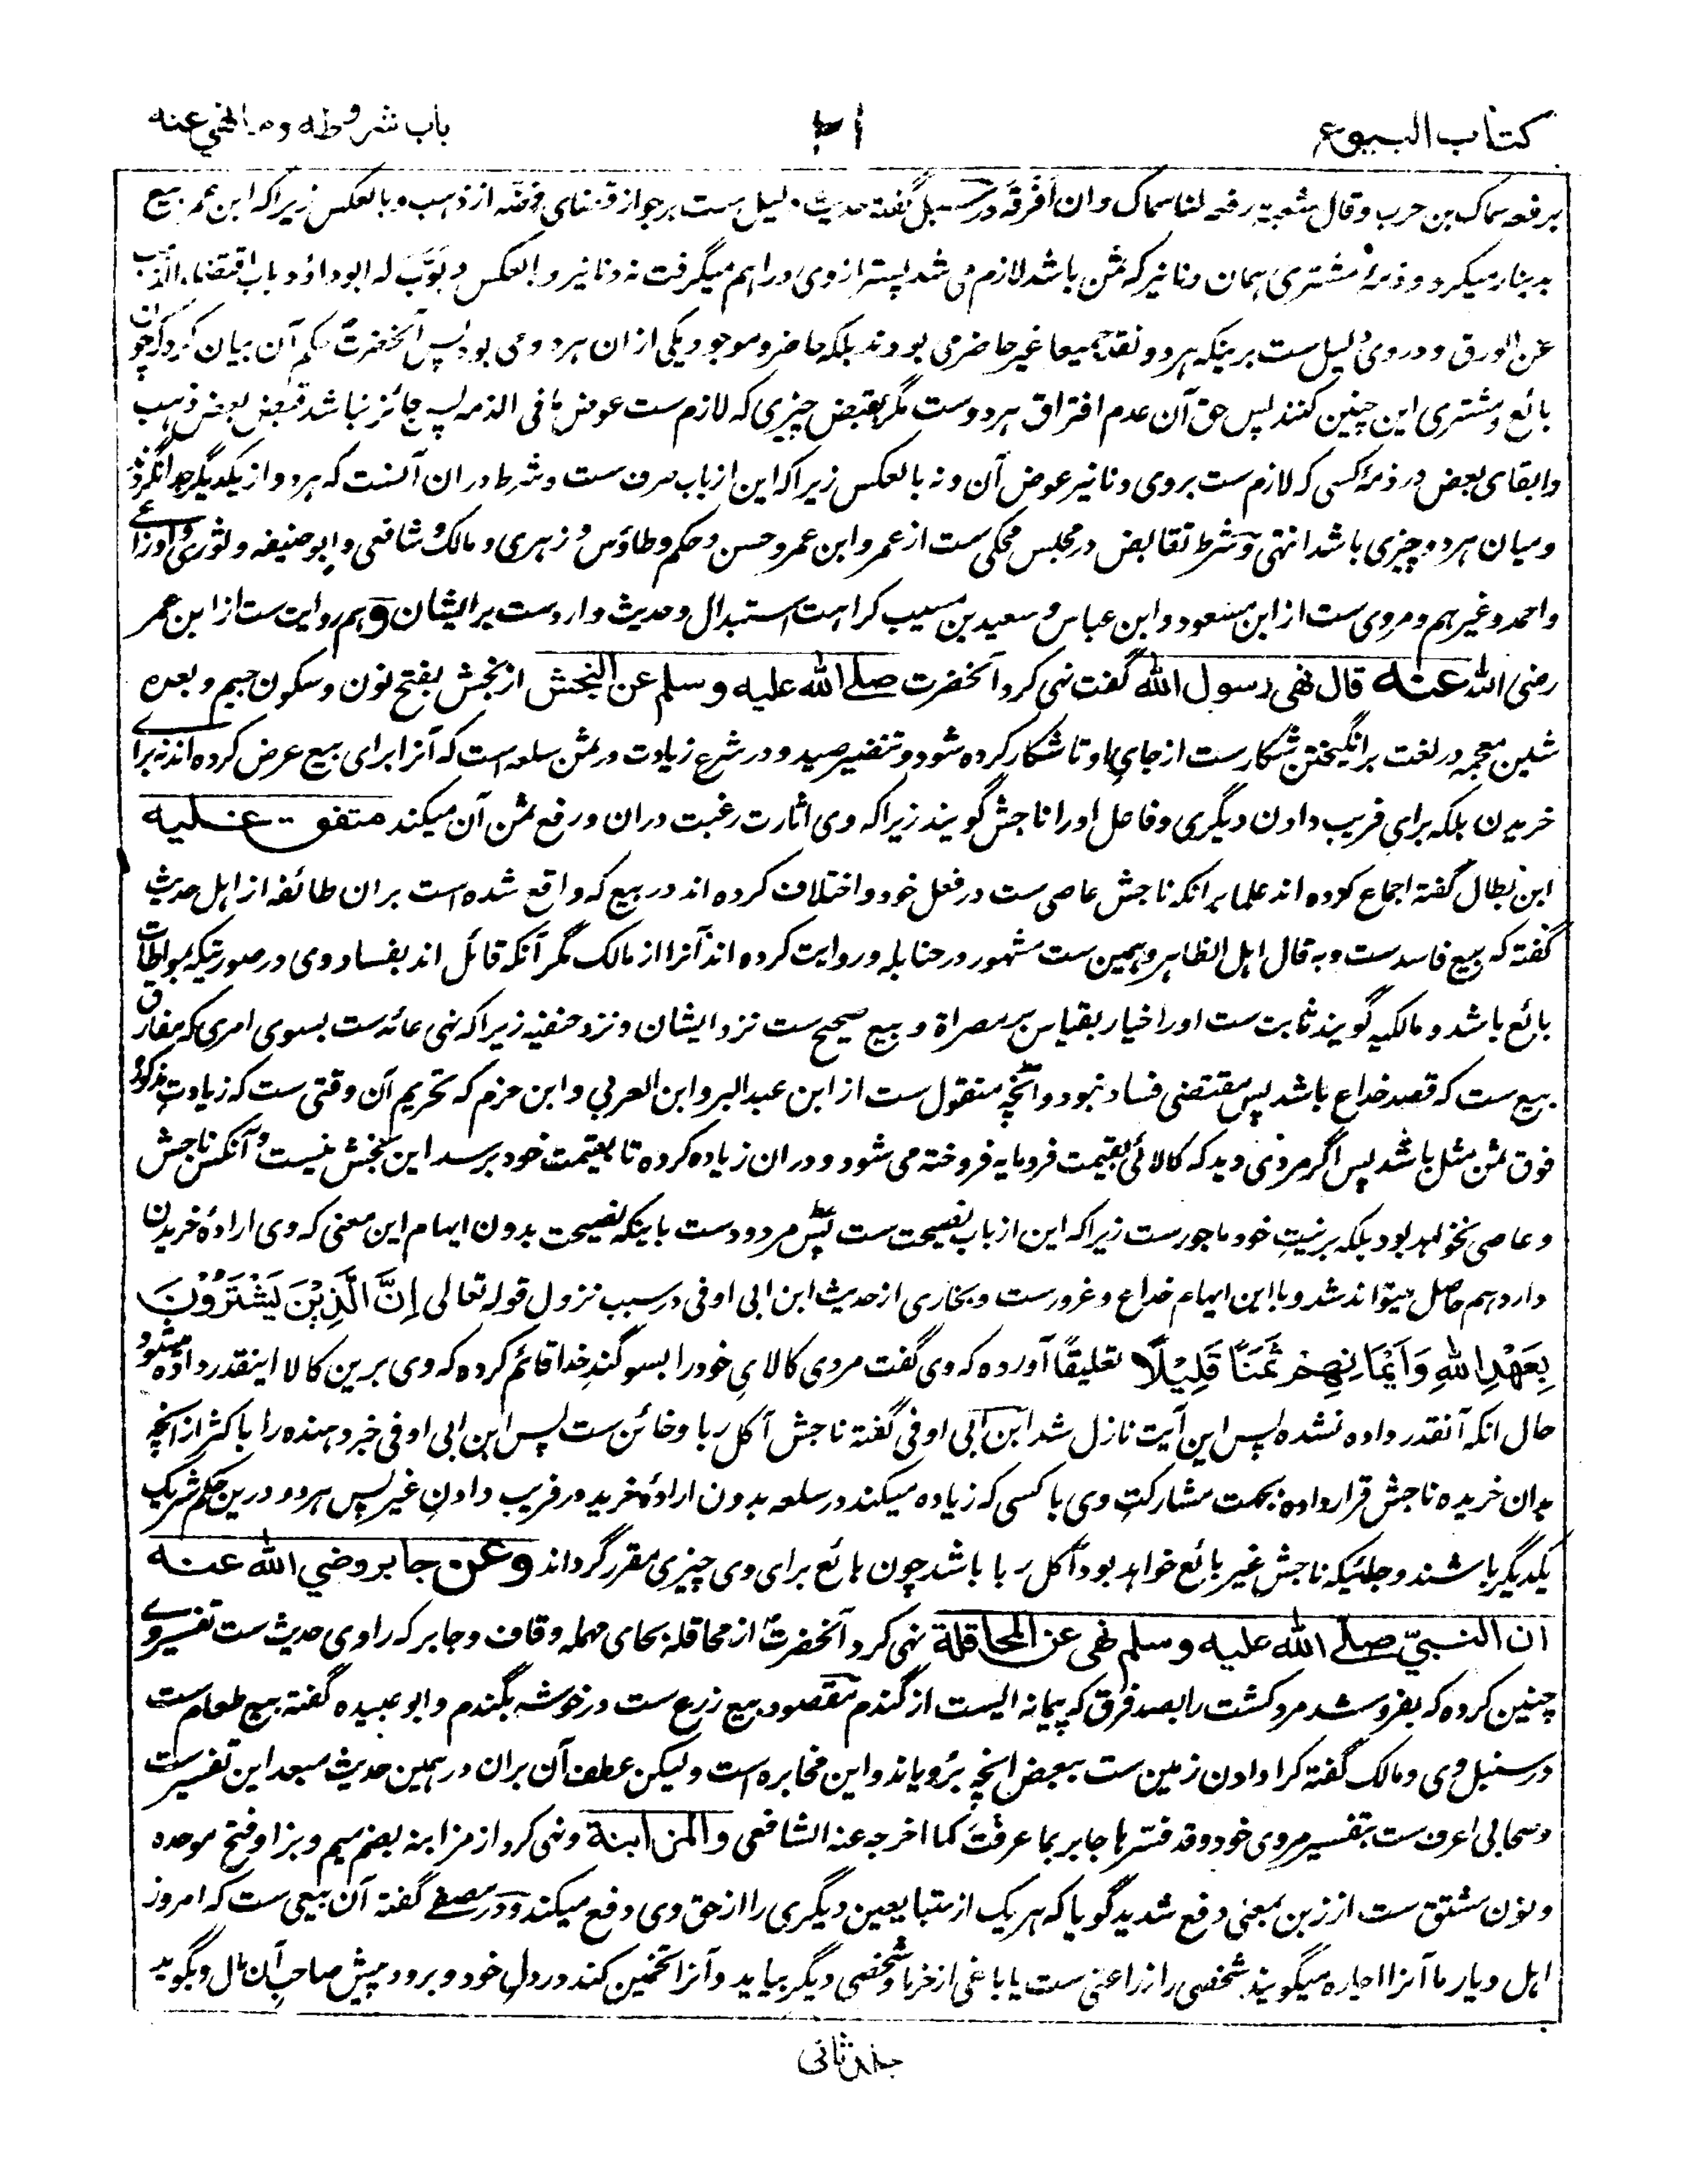 کتاب البیوع
باب شروطه وما نهی عنه
برفعه سماک بن حرب وقال شعبة رفعه لنا سماک وان افرقه در سبل گفته حدیث دلیل ست بر جواز قضای فضه از ذهب وبالعکس زیراکه ابن عمر بیع
بدینار میکرد و ذمۀ مشتری همان دنانیر که ثمن باشد لازم می شد پستر از وی دراهم میگرفت نه دنانیر وبالعکس وبوّب له ابوداؤد باب اقتضاء الذهب
عن الورق ودروی دلیل ست برینکه هر دو نقد جمیعا غیر حاضر می بودند بلکه حاضر و موجود یکی ازان هر دو می بود پس آنحضرتؐ حکم آن بیان کرد که چون
بائع و مشتری این چنین کنند پس حق آن عدم افتراق هر دوست مگر بقبض چیزی که لازم ست عوض مافی الذمه پس جائز نباشد قبض بعض ذهب
وابقای بعض در ذمۀ کسی که لازم ست بروی دنانیر عوض آن ونه بالعکس زیراکه این از باب صرف ست وشرط دران آنست که هر دو از یکدیگر جدا نگردند
ومیان هر دو چیزی باشد انتهی وشرط تقابض در مجلس محکی ست از عمر وابن عمر وحسن وحکم وطاؤس و زهری و مالک وشافعی وابوحنیفه وثوری واوزاعی
واحمد وغیرهم ومروی ست از ابن مسعود وابن عباس وسعید بن مسیب کراهت استبدال وحدیث وارد ست بر ایشان وهم روایت ست از ابن عمر
رضی الله عنه قال نهی رسول الله گفت نهی کرد آنحضرت صلے الله علیه وسلم عن النجش از نجش بفتح نون وسکون جیم وبعده
شین معجمه در لغت برانگیختن شکار ست از جای او تا شکار کرده شود وتنفیر صید و در شرع زیادت در ثمن سلعه است که آنرا برای بیع عرض کرده اند نه برای
خریدن بلکه برای فریب دادن دیگری وفاعل اورا ناجش گویند زیراکه وی اثارت رغبت دران ورفع ثمن آن میکند متفق علیه
ابن بطال گفته اجماع کرده اند علما برانکه ناجش عاصی ست در فعل خود واختلاف کرده اند در بیع که واقع شده است بران طائفه از اهل حدیث
گفته که بیع فاسد ست وبه قال اهل الظاهر وهمین ست مشهور در حنابله وروایت کرده اند آنرا از مالک مگر آنکه قائل اند بفساد وی در صورتیکه بمواطات
بائع باشد و مالکیه گویند ثابت ست اورا خیار بقیاس بر مصراة و بیع صحیح ست نزد ایشان ونزد حنفیه زیراکه نهی عائد ست بسوی امری که مفارق
بیع ست که قصد خداع باشد پس مقتضی فساد نبود وآنچه منقول ست از ابن عبد البر وابن العربی وابن حزم که تحریم آن وقتی ست که زیادت مذکوره
فوق ثمن مثل باشد پس اگر مردی دید که کالائی بقیمت فرومایه فروخته می شود و دران زیاده کرده تا بقیمت خود برسد این نجش نیست وآنکس ناجش
وعاصی نخواهد بود بلکه بر نیت خود ماجور ست زیراکه این از باب نصیحت ست پس مردود ست باینکه نصیحت بدون ایهام این معنی که وی ارادۀ خریدن
دارد هم حاصل میتواند شد وبا این ایهام خداع وغرور ست وبخاری از حدیث ابن ابی اوفی در سبب نزول قوله تعالی اِنَّ الَّذِیْنَ یَشْتَرُوْنَ
بِعَهْدِ اللهِ وَاَیْمَانِهِمْ ثَمَنًا قَلِیْلًا تعلیقًا آورده که وی گفت مردی کالای خود را بسوگند خدا قائم کرده که وی برین کالا اینقدر داده میشود
حال انکه آنقدر داده نشده پس این آیت نازل شد ابن ابی اوفی گفته ناجش آکل ربا وخائن ست پس ابن ابی اوفی خبر دهنده را باکثر از انچه
بدان خریده ناجش قرار داده بجهت مشارکت وی با کسی که زیاده میکند در سلعه بدون ارادۀ خرید در فریب دادن غیر پس هر دو درین حکم شریک
یکدیگر باشند وجائیکه ناجش غیر بائع خواهد بود آکل ربا باشد چون بائع برای وی چیزی مقرر گرداند وعن جابر رضی الله عنه
ان النبیّ صلے الله علیه وسلم نهی عن المحاقلة نهی کرد آنحضرتؐ از محاقلة بحای مهمله وقاف وجابر که راوی حدیث ست تفسیر وے
چنین کرده که بفروشد مرد کشت را بصد فرق که پیمانه ایست از گندم مقصود بیع زرع ست در خوشه بگندم وابو عبیده گفته بیع طعام ست
در سنبل وی و مالک گفته کرا دادن زمین ست ببعض انچه برویاند واین مخابره است ولیکن عطف آن بران در همین حدیث مبعد این تفسیر ست
وصحابی اعرف ست بتفسیر مروی خود وقد فسّرها جابر بما عرفت کما اخرجه عنه الشافعی والمزابنة ونهی کرد از مزابنه بضم میم وبزا وفتح موحده
ونون مشتق ست از زبن بمعنی دفع شدید گویا که هر یک از متبایعین دیگری را از حق وی دفع میکند ودر مصفے گفته آن بیعی ست که امروز
اهل دیار ما آنرا اجاره میگویند شخصی را زراعتی ست یا باغی از خرما وشخصی دیگر بیاید وآنرا تخمین کند در دل خود و برود پیش صاحب آن مال وبگوید
جلد ثانی